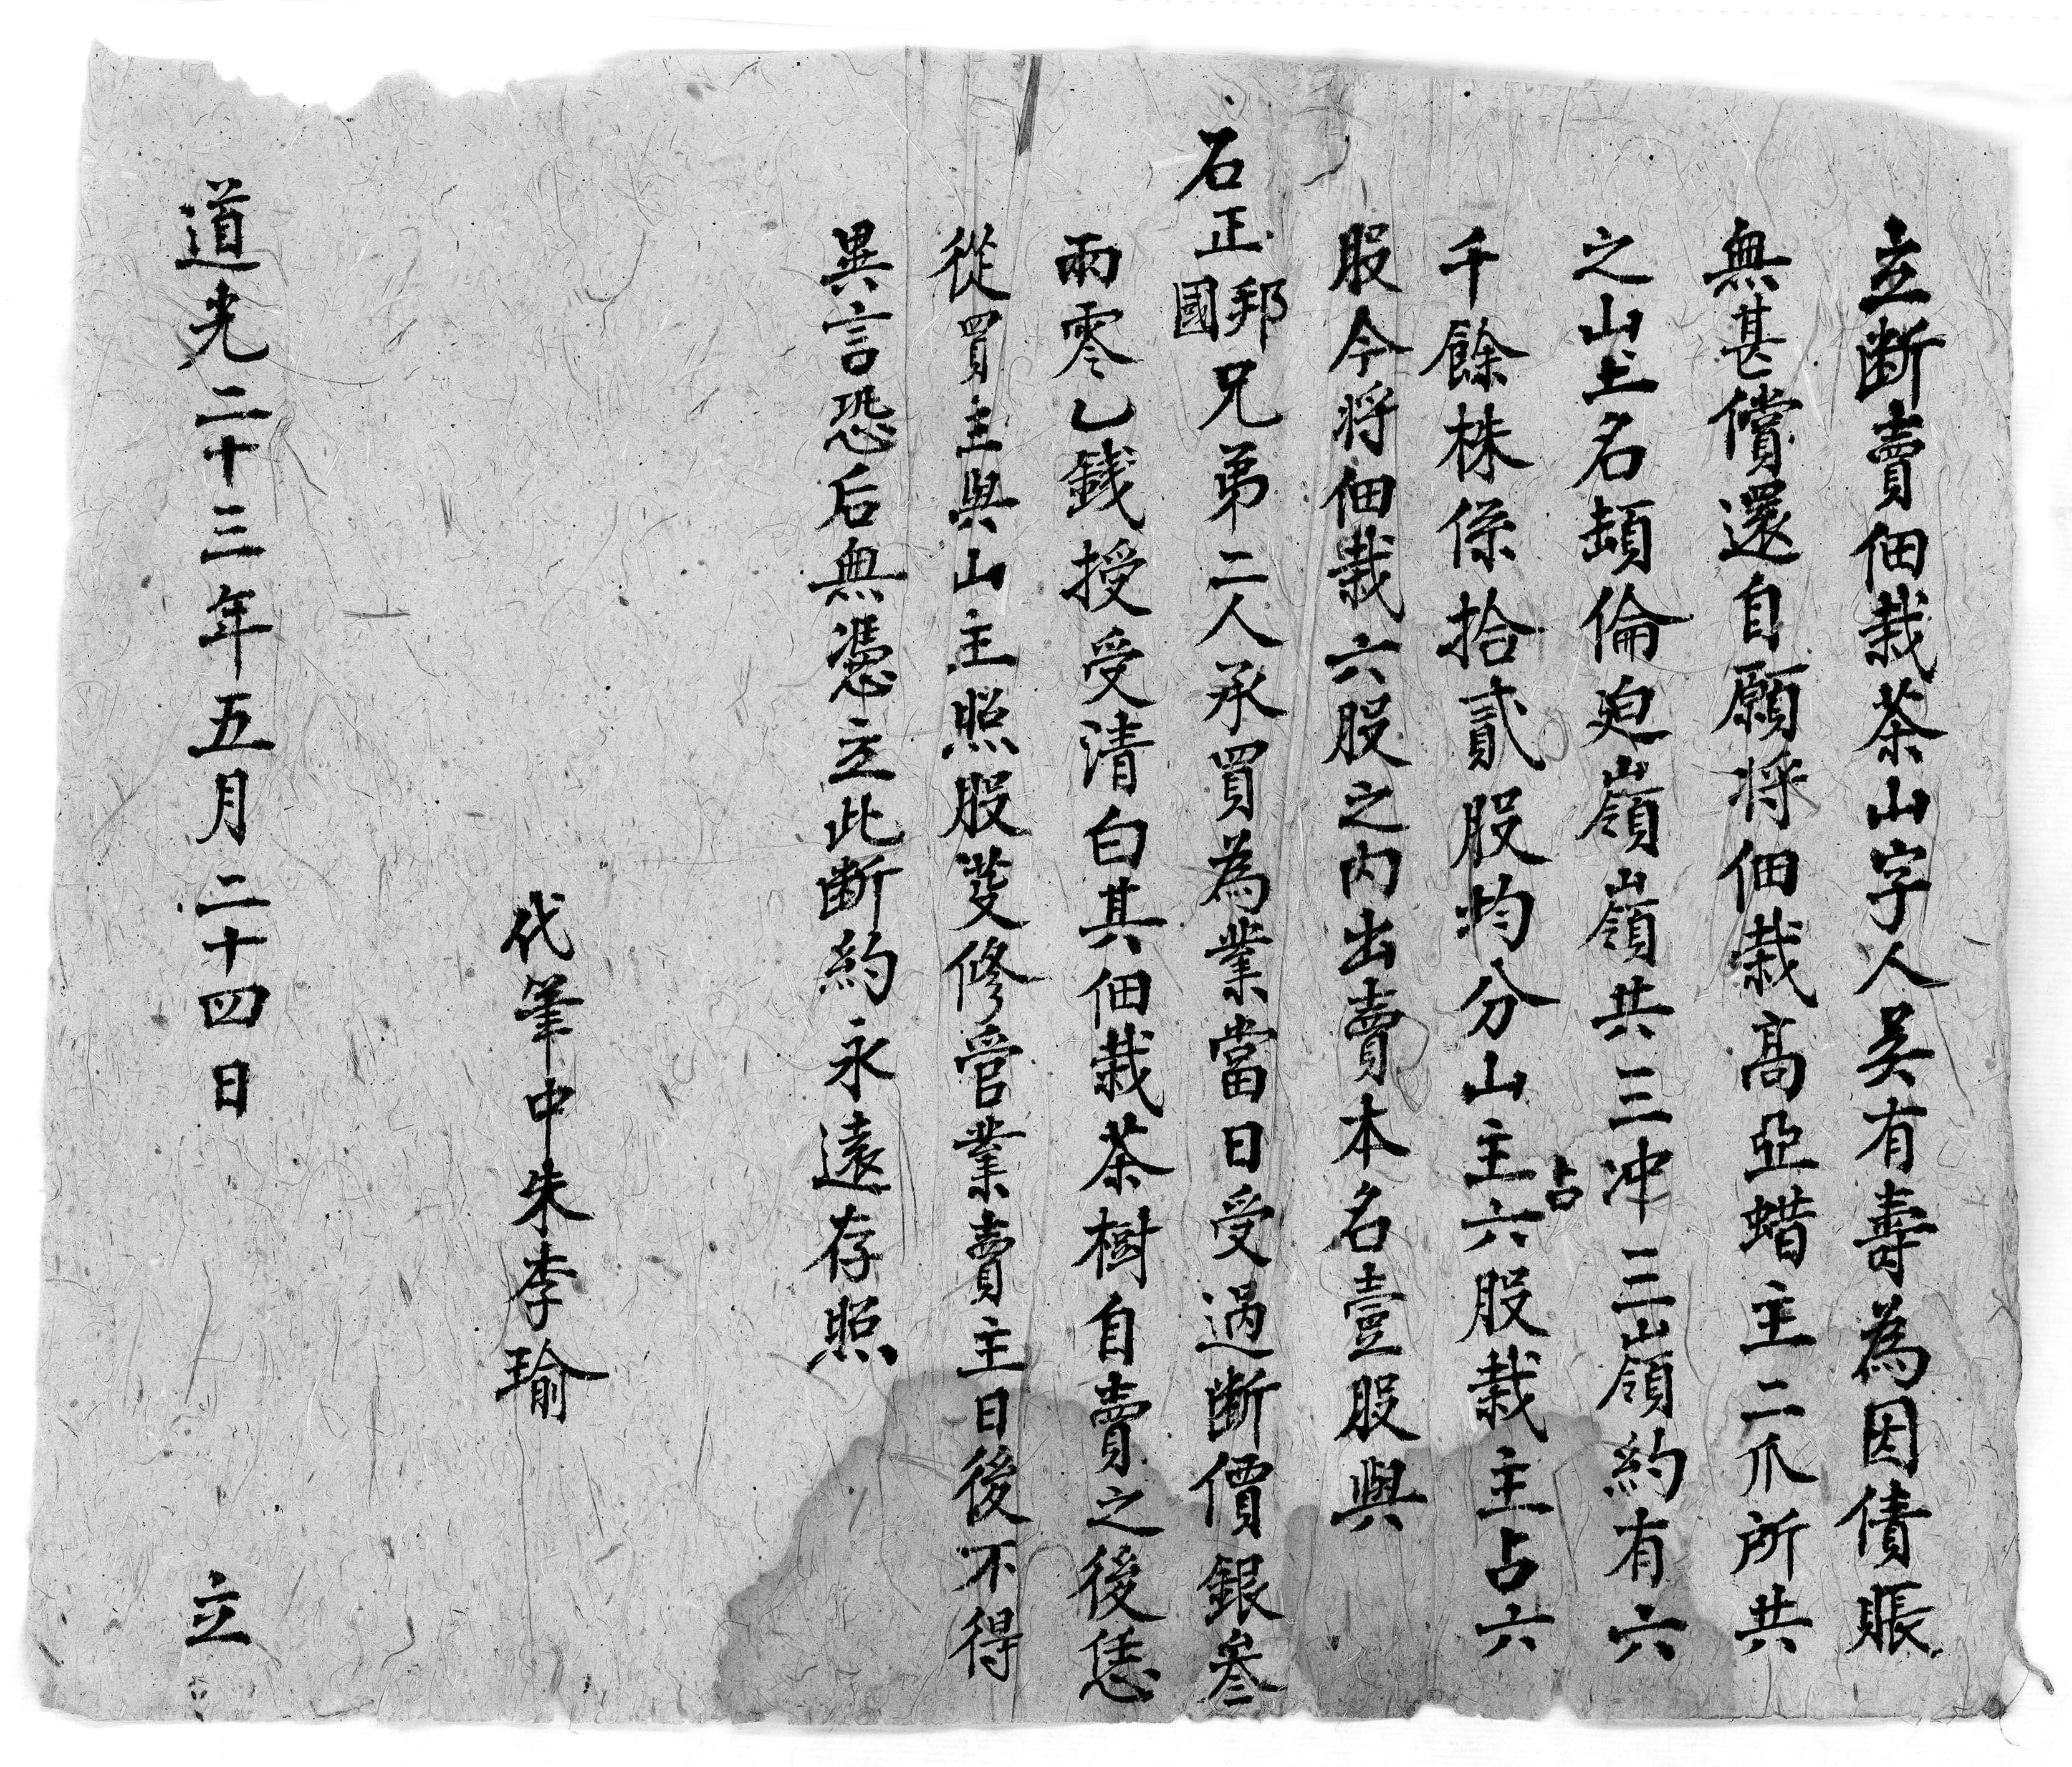 立断賣佃栽茶山字人吴有壽為因債賬
無甚償還自願将佃栽高亞蜡主二爪所共
之山土名頡倫迫嶺嶺共三冲三嶺約有六
千餘株係拾貳股均分山主占六股栽主占六
股今将佃栽六股之内出賣本名壹股與
石正邦國兄弟二人承買為業當日受過断價銀叁
兩零乙銭授受清白其佃栽茶樹自賣之後恁
從買主與山主照股芟修管業賣主日後不得
異言恐后無憑立此断約永遠存照
代筆中朱李瑜
道光二十三年五月二十四日 立